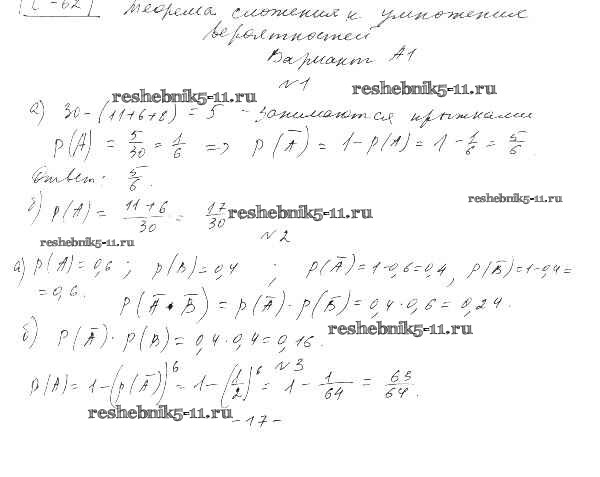 С-62 Теорема сложения и умножения
вероятностей
Вариант А1
№1
reshebnik5-11.ru reshebnik5-11.ru
а) 30 - (11+6+8) = 5 - занимаются прыжками
p(A) = 5/30 = 1/6 => p(Ā) = 1 - p(A) = 1 - 1/6 = 5/6.
Ответ: 5/6.
reshebnik5-11.ru
б) p(A) = 11+6/30 = 17/30 reshebnik5-11.ru
№2
reshebnik5-11.ru
а) p(A) = 0,6; p(B) = 0,4; p(Ā) = 1-0,6 = 0,4, p(B̄) = 1-0,4 =
= 0,6.
p(Ā • B̄) = p(Ā) · p(B̄) = 0,4 · 0,6 = 0,24.
reshebnik5-11.ru
б) p(Ā) · p(B) = 0,4 · 0,4 = 0,16.
№3
p(A) = 1 - (p(Ā))⁶ = 1 - (1/2)⁶ = 1 - 1/64 = 63/64.
reshebnik5-11.ru
-17-